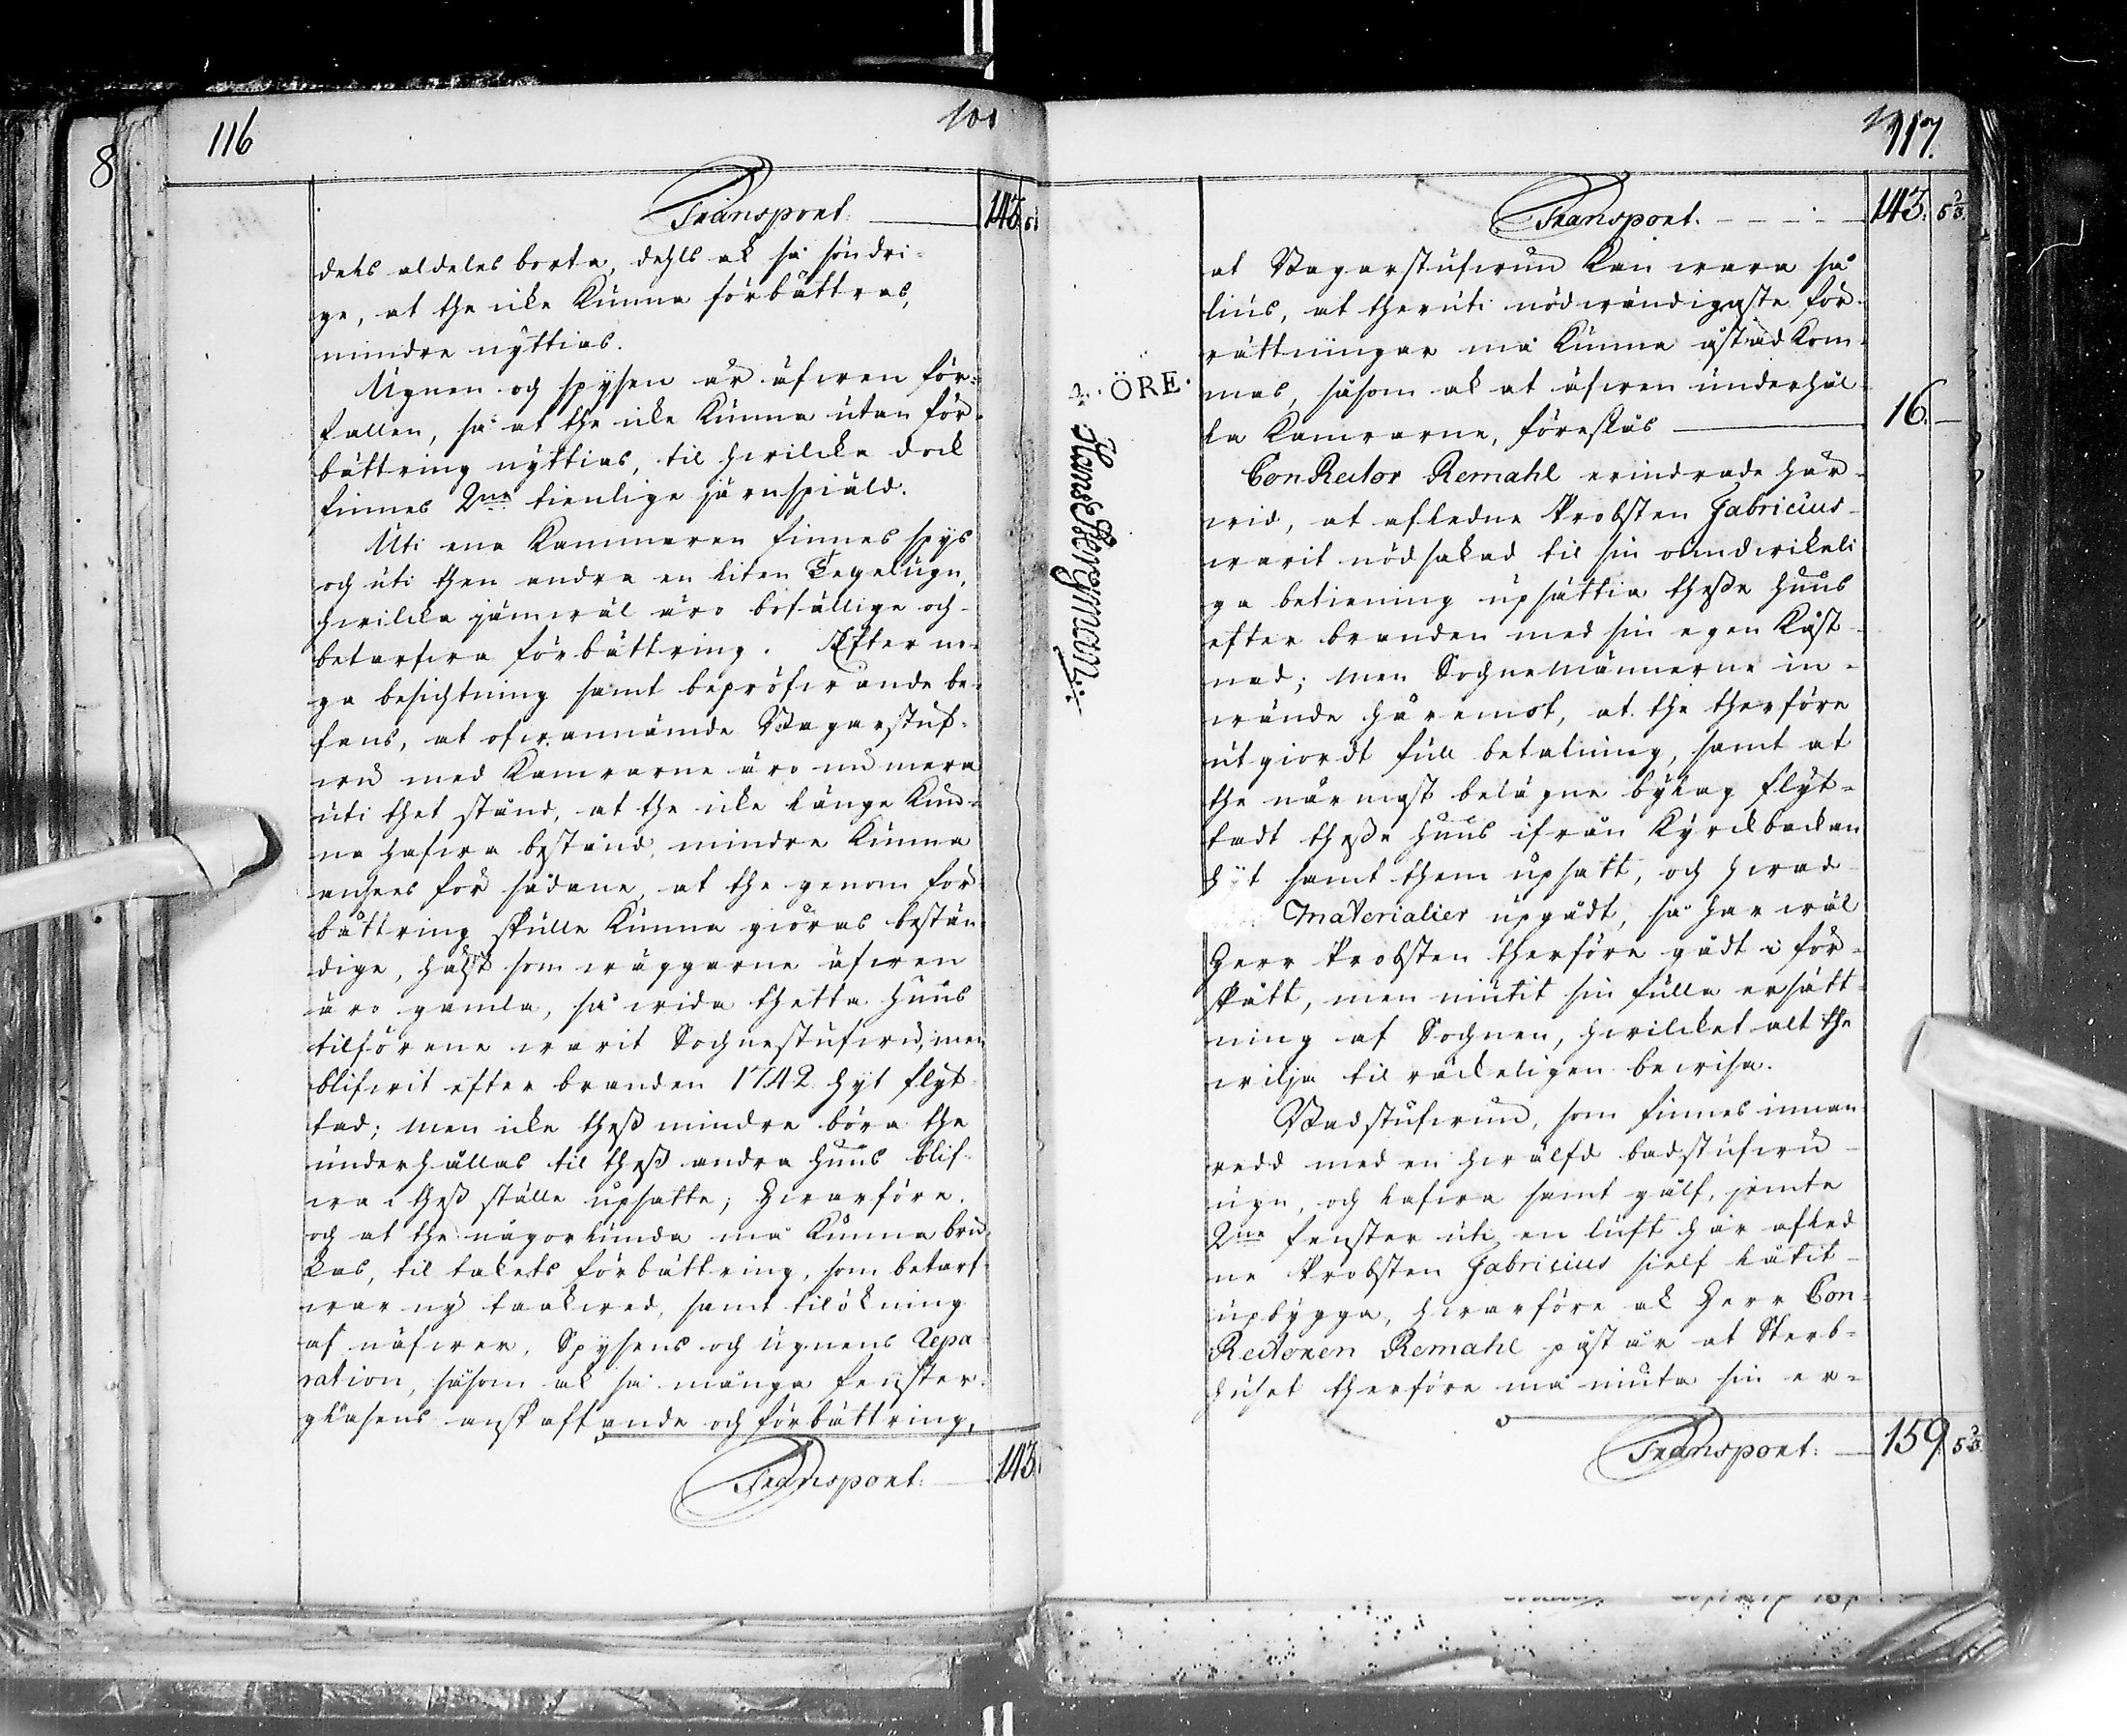 8
116
101
Transport. 143. 5
dels aldeles borta, dehls ak så söndri-
ge, at the icke kunna förbättras,
mindre nyttias.
Ugnen och spysen är äfwen för-
fallen, så at the icke kunna utan för-
bättring nyttias, til hwilcka dock
finnes 2ne tienlige järnspiäld.
Uti ena Kammaren finnes spys
och uti then andra en liten Tegelugn,
hwilcka jämwäl äro bofällige och
betarfwa förbättring. Efter no-
ga besichtning samt bepröfwande be-
fans, at ofwannämde Bagarstuf-
wu med Kamrarne äro nu mera
uti thet stånd, at the icke länge kun-
na hafwa bestånd, mindre kunna
anses för sådane, at the genom för-
bättring skulle kunna giöras bestän-
dige, hälst som wäggarne äfwen
äro gamla, så wida thetta huus
tilförene warit Sochnestufwu, men
blifwit efter branden 1742 hyt flyt-
tad; men icke theß mindre böra the
underhållas til theß andra huus blif-
wa i theß ställe upsatte; Hwarföre,
och at the någorlunda må kunna bru-
kas, til takets förbättring, som betarf-
war ny taakwed, samt tilökning
af näfwer, Spysens och ugnens repa-
ration, såsom ak så många fenster-
glasens anskaffande och förbättring,
Transport. 143.
117.
Transport. 143. 5 2/3.
at Bagarstufwun kan wara så
lius, at theruti nödwändigaste för-
rättningar må kunna åstadkom-
mas, såsom ak at äfwen underhål-
la Kamrarne, föreslås 16. —
ConRector Remahl erindrade här-
wid, at afledne Probsten Fabricius
warit nödsakad til sin oundwikeli-
ga betiening upsättia theße huus
efter branden med sin egen kåst-
nad; men Sochnemännerne in-
wände häremot, at the therföre
utgiordt full betalning, samt at
the närmast belägne bylag flyt-
tadt theße huus ifrån Kyrckbackan
hyt samt them upsatt, och hwad
Materialier upgådt, så har wäl
Herr Probsten therföre gådt i för-
skått, men niutit sin fulla ersätt-
ning af Sochnen, hwilcket alt the
wilja til räckeligen bewisa.
Badstufwun, som finnes innan-
redd med en hwälfd badstufwu-
ugn, och lafwa samt gålf, jemte
2ne fenster uti en luft har afled-
ne Probsten Fabricius sielf låtit
upbygga, hwarföre ak Herr Con-
Rectoren Remahl påstår at Sterb-
huset therföre må niuta sin er-
Transport. 159 5 2/3.
2. ÖRE.
Hans Bergman